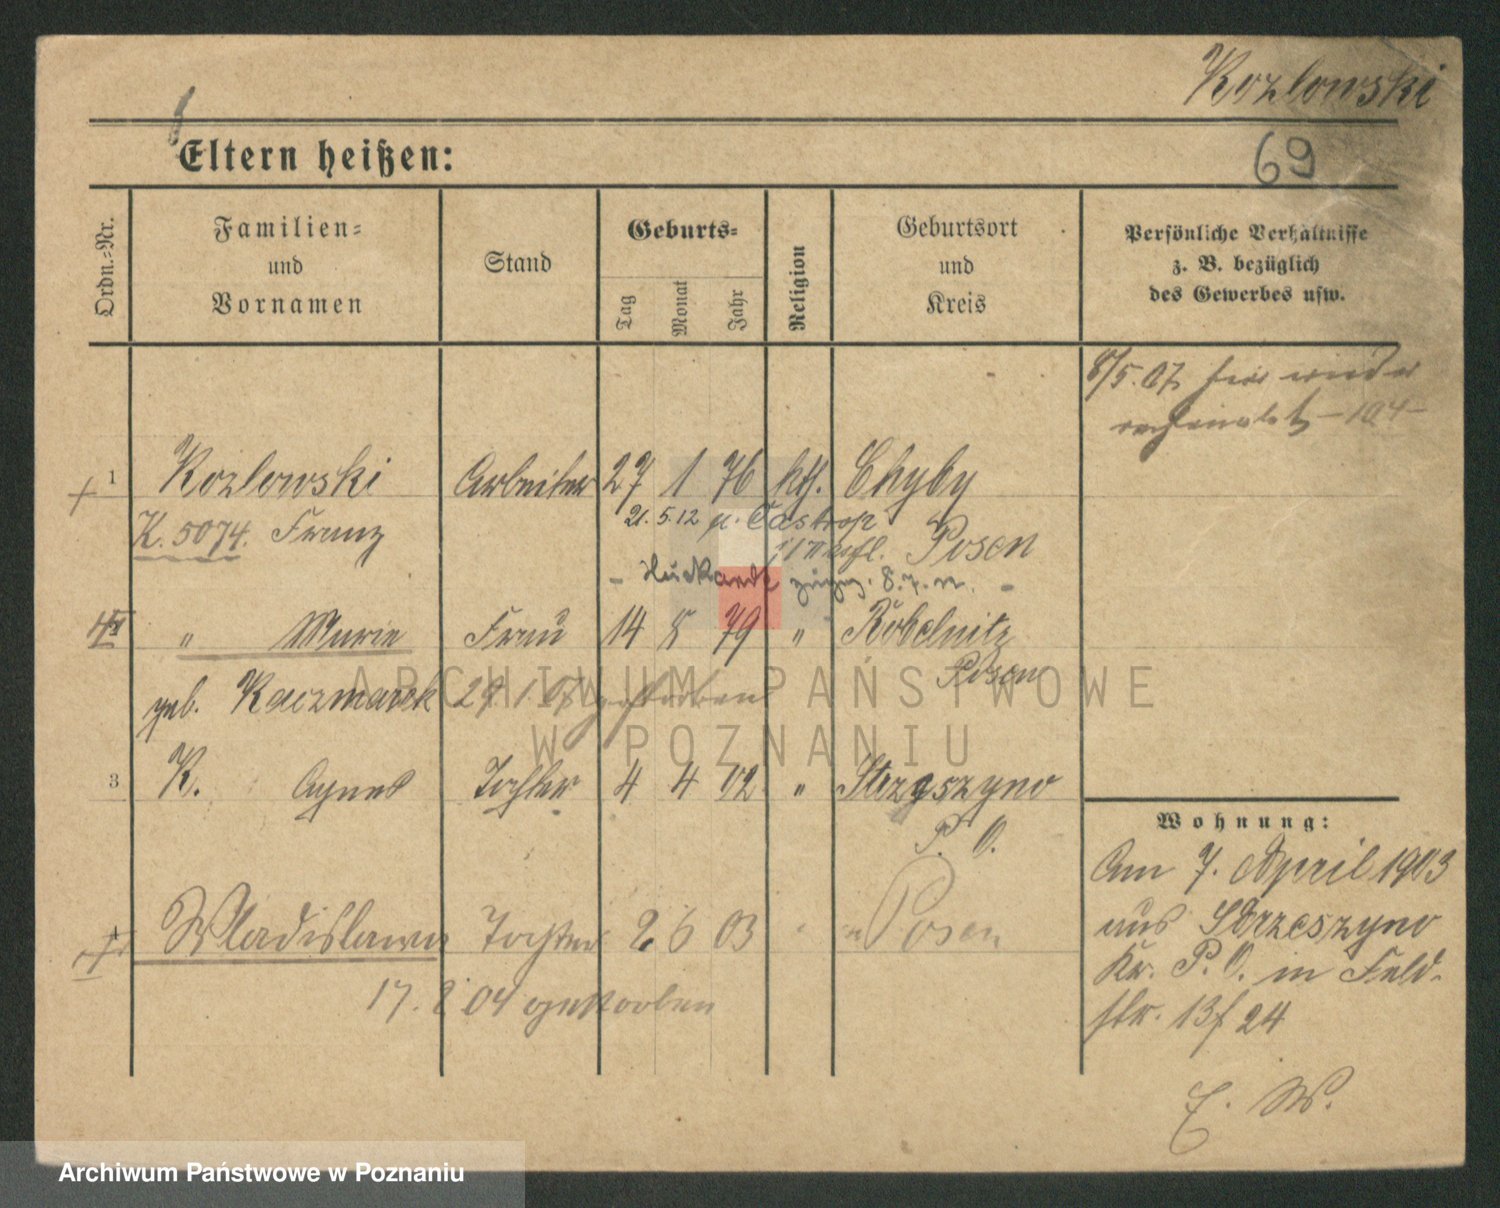 Kozlowski
69
Eltern heißen:
Ordn.-Nr.
Familien- und Vornamen
Stand
Geburts-
Tag
Monat
Jahr
Religion
Geburtsort und Kreis
Persönliche Verhältnisse z. B. bezüglich des Gewerbes usw.
8/5.07 hier wieder
1 Kozlowski Arbeiter 27 1 76 kth. Chyby
K. 5074. Franz Posen
21. 5.12 n. Castrop
Huckarde 8.7.12.
" Marie Frau 14 8 79 " Kobelnitz
Posen
geb. Kaczmarek 29.1.07 gestorben
3 K. Agnes Tochter 4 4 02 " Strzeszyno
P. O.
Wladislawa Tochter 2 6 03 " Posen
17. 8 04 gestorben
Wohnung:
Am 7. April 1903
aus Strzeszyno
Kr. P. O. in Feld-
str. 13 f 24
E. W.
ARCHIWUM PAŃSTWOWE
W POZNANIU
Archiwum Państwowe w Poznaniu